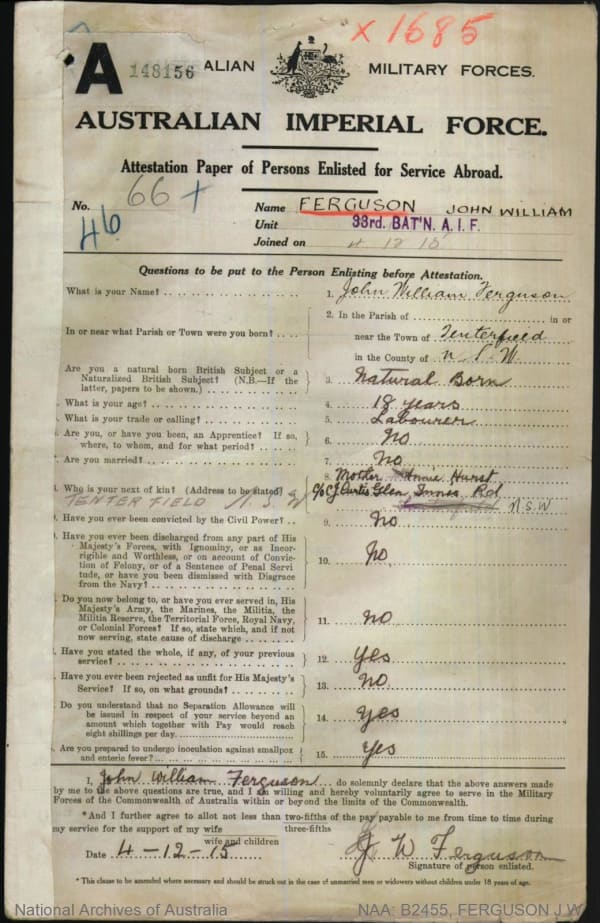 x 1685
A 148156 ALIAN MILITARY FORCES.
AUSTRALIAN IMPERIAL FORCE.
Attestation Paper of Persons Enlisted for Service Abroad.
No. 66 +
46
Name FERGUSON JOHN WILLIAM
Unit 33rd. BAT'N. A. I. F.
Joined on 4 12 15
Questions to be put to the Person Enlisting before Attestation.
What is your Name? 1. John William Ferguson
In or near what Parish or Town were you born? 2. In the Parish of in or
near the Town of Tenterfield
in the County of N. S. W.
Are you a natural born British Subject or a
Naturalized British Subject? (N.B.—If the
latter, papers to be shown.) 3. Natural Born
What is your age? 4. 18 years
What is your trade or calling? 5. Labourer
Are you, or have you been, an Apprentice? If so,
where, to whom, and for what period? 6. No
Are you married? 7. No
Who is your next of kin? (Address to be stated) 8. Mother Annie Hurst
C/o C J Curtis Glen Innes Rd
TENTERFIELD N S W N.S.W
9. Have you ever been convicted by the Civil Power? 9. No
Have you ever been discharged from any part of His
Majesty's Forces, with Ignominy, or as Incor-
rigible and Worthless, or on account of Convic-
tion of Felony, or of a Sentence of Penal Servi
tude, or have you been dismissed with Disgrace
from the Navy? 10. No
Do you now belong to, or have you ever served in, His
Majesty's Army, the Marines, the Militia, the
Militia Reserve, the Territorial Force, Royal Navy,
or Colonial Forces? If so, state which, and if not
now serving, state cause of discharge 11. no
Have you stated the whole, if any, of your previous
service? 12. Yes
Have you ever been rejected as unfit for His Majesty's
Service? If so, on what grounds? 13. No
Do you understand that no Separation Allowance will
be issued in respect of your service beyond an
amount which together with Pay would reach
eight shillings per day. 14. Yes
Are you prepared to undergo inoculation against smallpox
and enteric fever? 15. Yes
I, John William Ferguson do solemnly declare that the above answers made
by me to the above questions are true, and I am willing and hereby voluntarily agree to serve in the Military
Forces of the Commonwealth of Australia within or beyond the limits of the Commonwealth.
*And I further agree to allot not less than two-fifths of the pay payable to me from time to time during
three-fifths
my service for the support of my wife
wife and children
Date 4-12-15 J W Ferguson
Signature of person enlisted.
*This clause to be amended where necessary and should be struck out in the case of unmarried men or widowers without children under 18 years of age.
National Archives of Australia NAA: B2455, FERGUSON J W